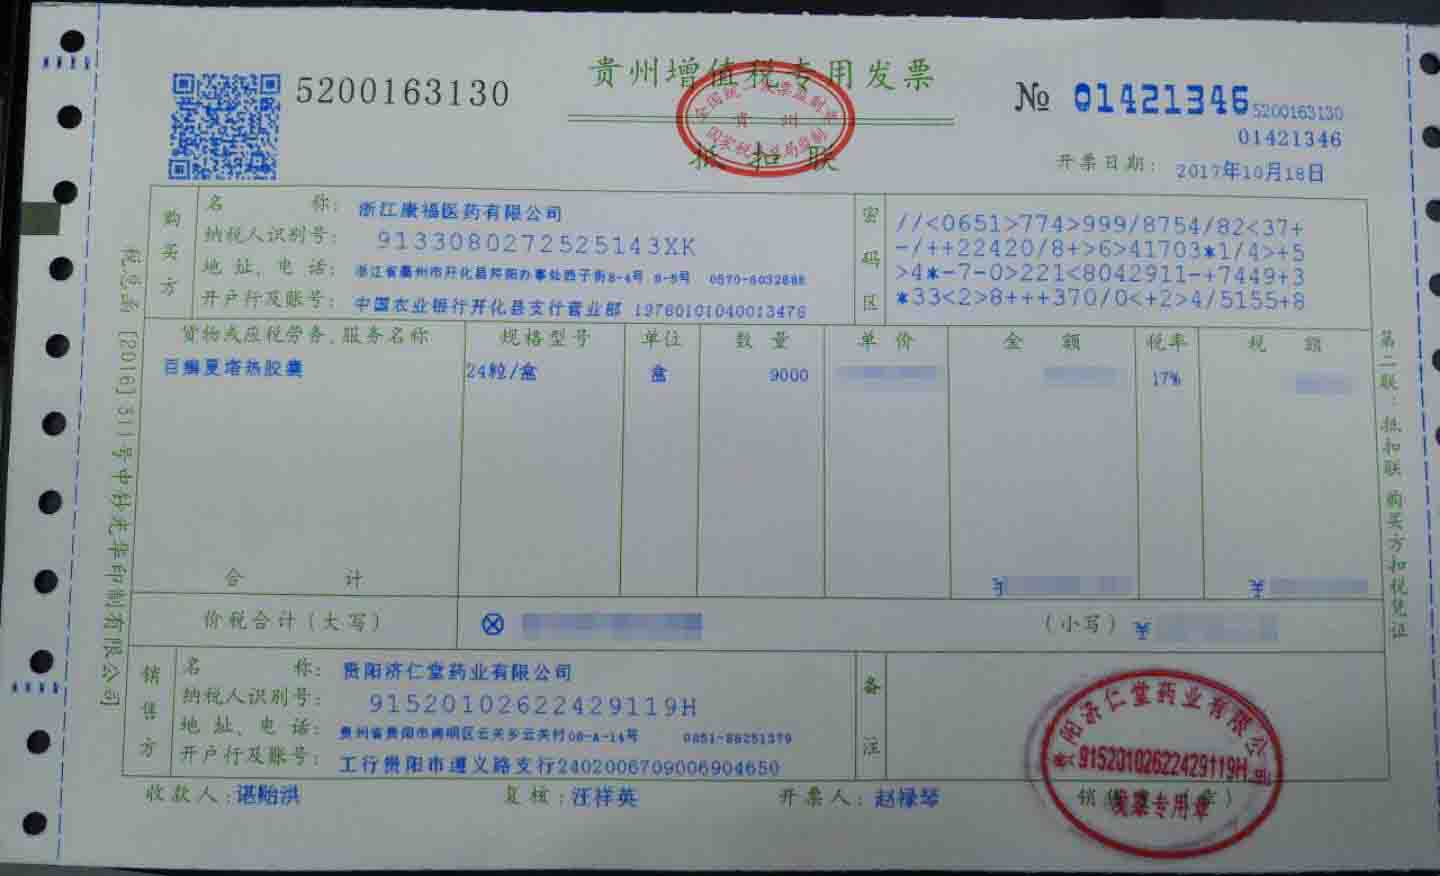 贵州增值税专用发票
5200163130
№ 01421346
5200163130
01421346
抵扣联
开票日期: 2017年10月18日
全国统一发票监制章
贵州
国家税务总局监制
税总函[2016]311号中钞光华印制有限公司
购买方
名称: 浙江康福医药有限公司
纳税人识别号: 91330802725251433XK
地址、电话: 浙江省衢州市开化县芹阳办事处西子街8-4号 8-5号 0570-6032888
开户行及账号: 中国农业银行开化县支行营业部 19760101040013476
密码区
//<0651>774>999/8754/82<37+
-/++22420/8+>6>41703*1/4>+5
>4*-7-0>221<8042911-+7449+3
*33<2>8+++370/0<+2>4/5155+8
货物或应税劳务、服务名称 规格型号 单位 数量 单价 金额 税率 税额
百癣夏塔热胶囊 24粒/盒 盒 9000 17%
合计 ¥ ¥
价税合计(大写) ⊗ (小写) ¥
销售方
名称: 贵阳济仁堂药业有限公司
纳税人识别号: 91520102622429119H
地址、电话: 贵州省贵阳市南明区云关乡云关村08-A-14号 0851-88251379
开户行及账号: 工行贵阳市遵义路支行2402006709006904650
备注
收款人: 谌贻洪 复核: 汪祥英 开票人: 赵禄琴 销售方:(章)
贵阳济仁堂药业有限公司
91520102622429119H
发票专用章
第二联:抵扣联 购买方扣税凭证